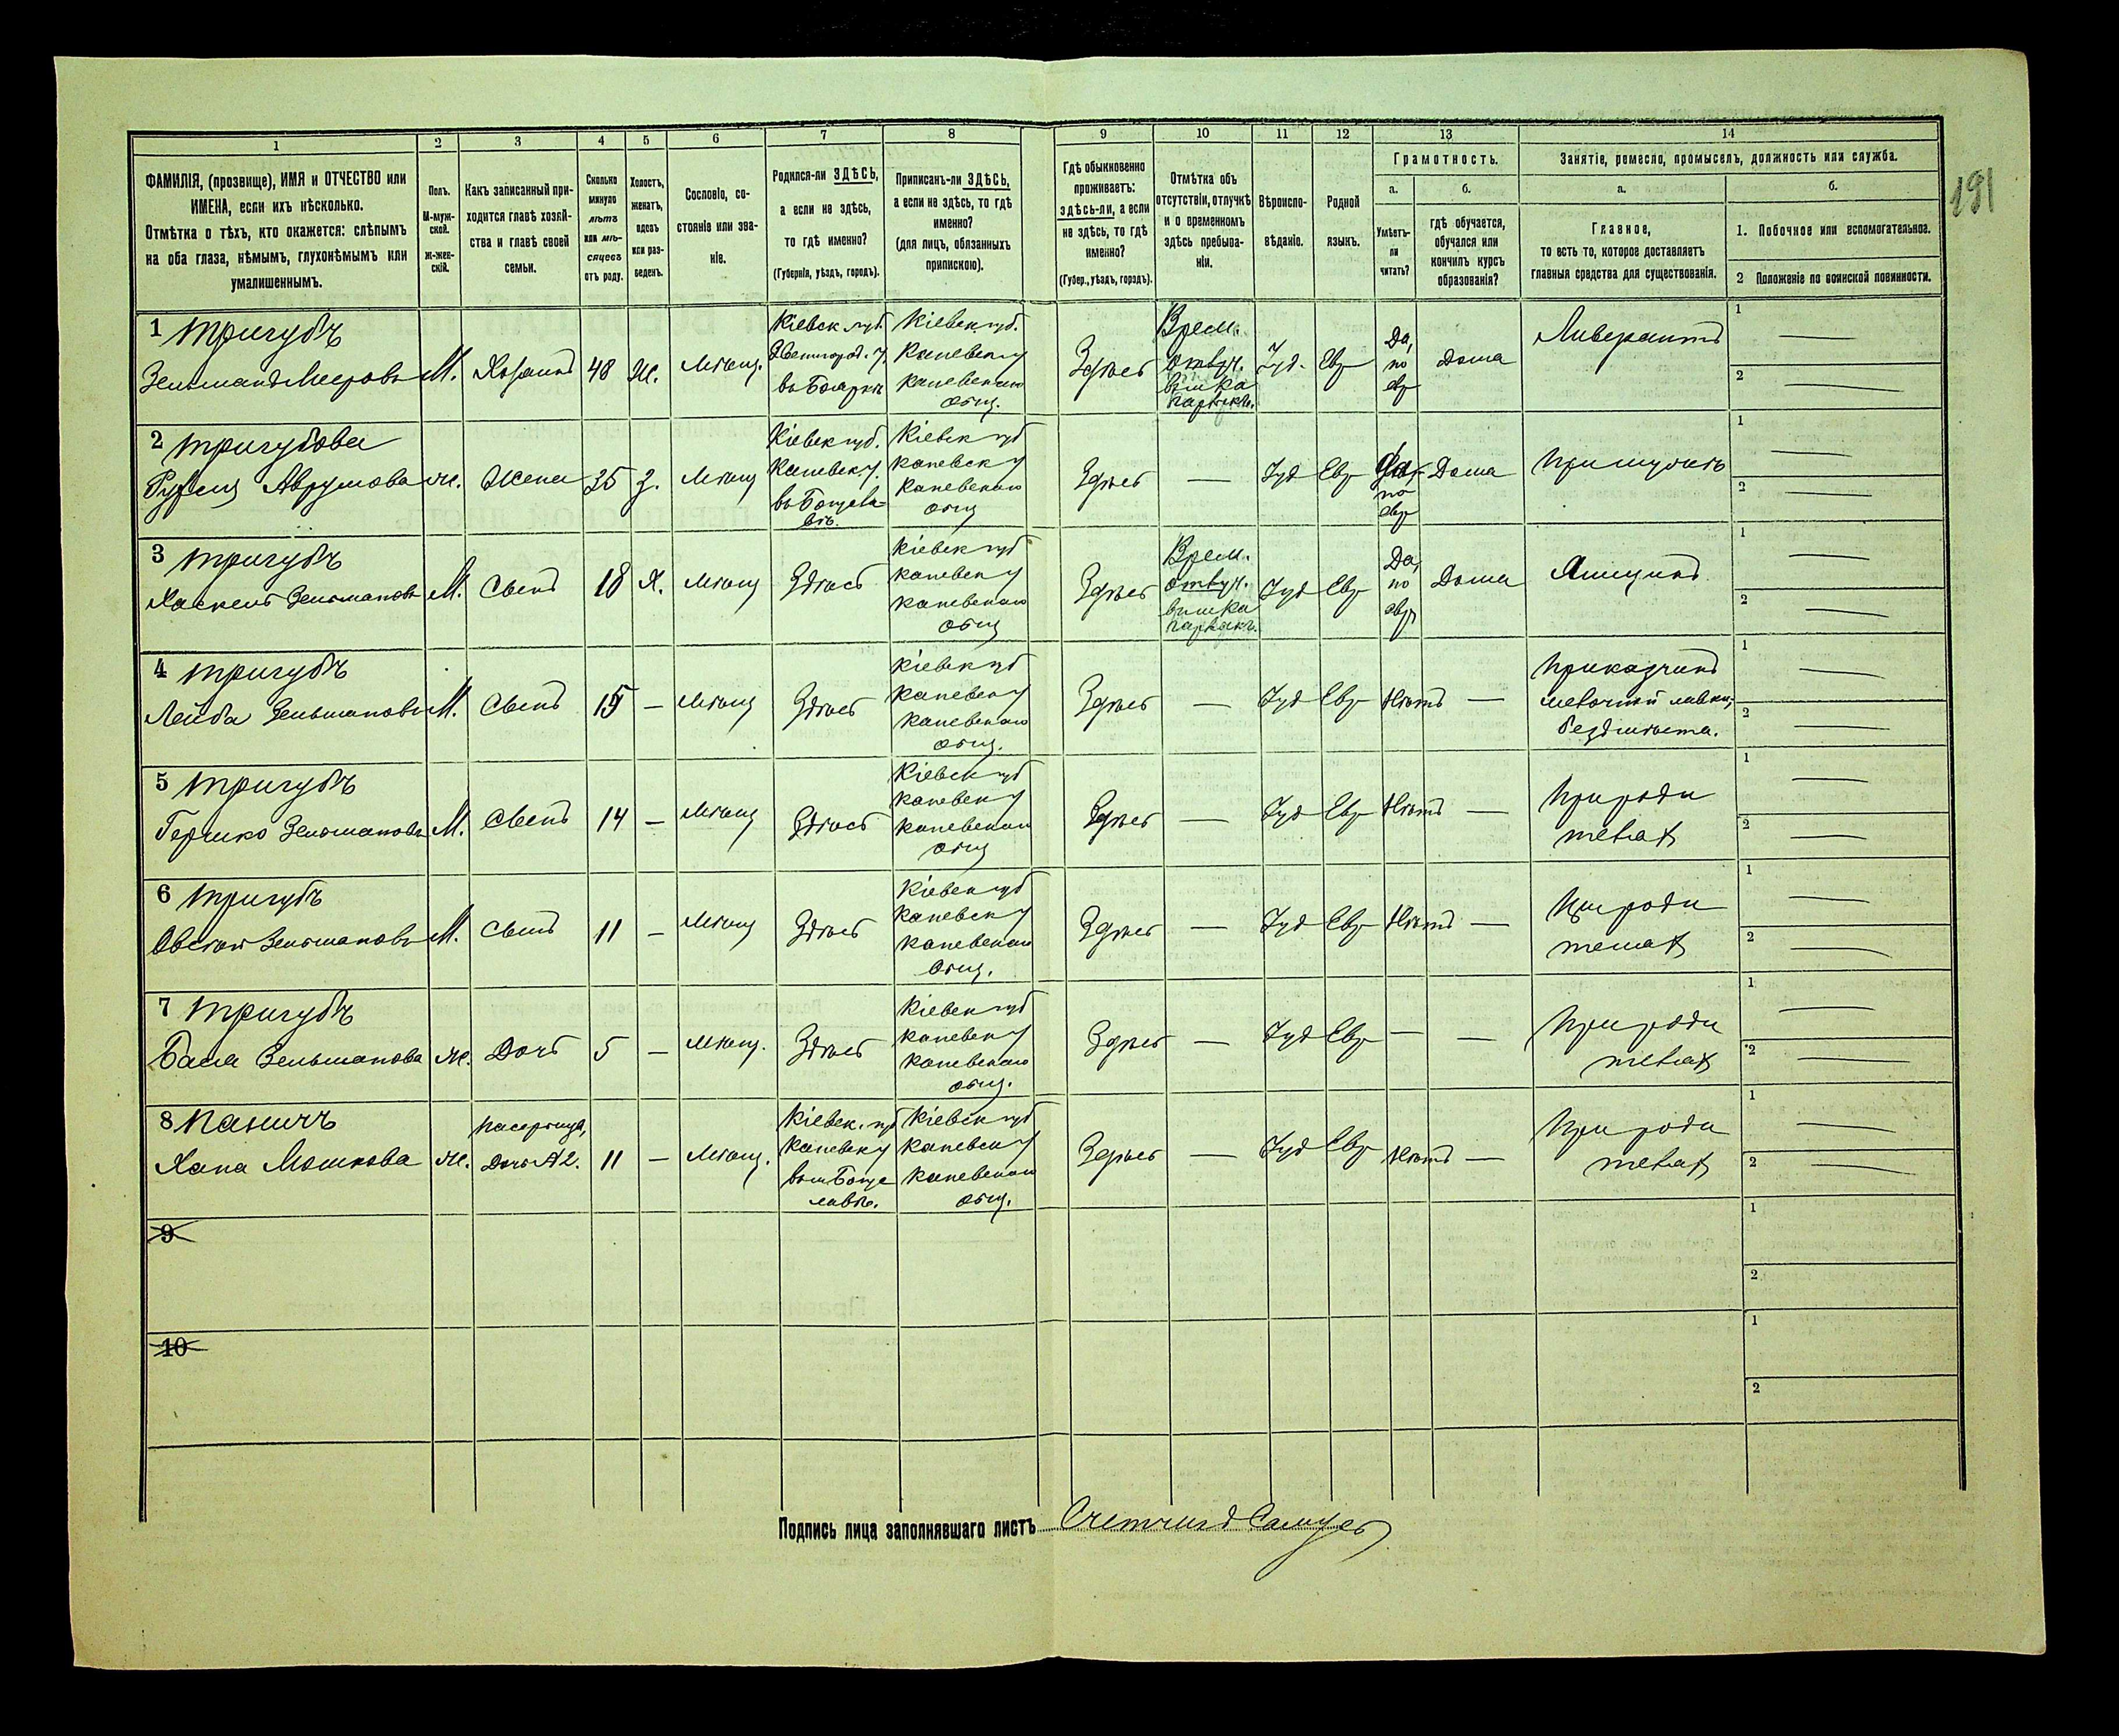 191
1 2 3 4 5 6 7 8 9 10 11 12 13 14
ФАМИЛІЯ, (прозвище), ИМЯ и ОТЧЕСТВО или
ИМЕНА, если ихъ нѣсколько.
Отмѣтка о тѣхъ, кто окажется: слѣпымъ
на оба глаза, нѣмымъ, глухонѣмымъ или
умалишеннымъ.
Полъ.
М-муж-
ской.
Ж-жен-
скій.
Какъ записанный при-
ходится главѣ хозяй-
ства и главѣ своей
семьи.
Сколько
минуло
лѣтъ
или мѣ-
сяцевъ
отъ роду.
Холостъ,
женатъ,
вдовъ
или раз-
веденъ.
Сословіе, со-
стояніе или зва-
ніе.
Родился-ли ЗДѢСЬ,
а если не здѣсь,
то гдѣ именно?
(Губернія, уѣздъ, городъ).
Приписанъ-ли ЗДѢСЬ,
а если не здѣсь, то гдѣ
именно?
(для лицъ, обязанныхъ
припискою).
Гдѣ обыкновенно
проживаетъ:
здѣсь-ли, а если
не здѣсь, то гдѣ
именно?
(Губер., уѣздъ, городъ).
Отмѣтка объ
отсутствіи, отлучкѣ
и о временномъ
здѣсь пребыва-
ніи.
Вѣроиспо-
вѣданіе.
Родной
языкъ.
Грамотность.
а.
Умѣетъ-
ли
читать?
б.
гдѣ обучается,
обучался или
кончилъ курсъ
образованія?
Занятіе, ремесло, промыселъ, должность или служба.
а.
Главное,
то есть то, которое доставляетъ
главныя средства для существованія.
б.
1. Побочное или вспомогательное.
2 Положеніе по воинской повинности.
1 Тригубъ
Зельманъ Мееровъ М. Хозяинъ 48 Ж. Мѣщ.
Кіевск губ.
Звенигород. у.
въ Бояркѣ
Кіевск губ.
Каневск у
Каневскаго
общ.
Здѣсь
Врем.
отлуч.
Іуд. Евр
Да,
по
евр
Дома
Ливерантъ
1 —
2 —
2 Тригубова
Рузя Аврумова Ж. Жена 35 З. Мѣщ
Кіевск губ.
Каневск у.
въ Богусла-
вѣ.
Кіевск губ
Каневск у
Каневскаго
общ
Здѣсь — Іуд Евр
Да,
по
евр
Дома
При мужѣ
1 —
2 —
3 Тригубъ
Хаскель Зельмановъ М. Сынъ 18 Х. Мѣщ Здѣсь
Кіевск губ
Каневск у
Каневскаго
общ
Здѣсь
Врем.
отлуч.
Іуд Евр
Да,
по
евр
Дома
Ямщикъ
1 —
2 —
4 Тригубъ
Лейба Зельмановъ М. Сынъ 15 — Мѣщ Здѣсь
Кіевск губ
Каневск у
Каневскаго
общ.
Здѣсь — Іуд Евр Нѣтъ —
Приказчикъ
мелочной лавки,
безъ мѣста.
1 —
2 —
5 Тригубъ
Гершко Зельмановъ М. Сынъ 14 — Мѣщ Здѣсь
Кіевск губ
Каневск у
Каневскаго
общ
Здѣсь — Іуд Евр Нѣтъ —
При роди
теляхъ
1 —
2 —
6 Тригубъ
Овсѣй Зельмановъ М. Сынъ 11 — Мѣщ Здѣсь
Кіевск губ
Каневск у
Каневскаго
общ.
Здѣсь — Іуд Евр Нѣтъ —
При роди
теляхъ
1 —
2 —
7 Тригубъ
Бася Зельманова Ж. Дочь 5 — Мѣщ. Здѣсь
Кіевск губ
Каневск у
Каневскаго
общ.
Здѣсь — Іуд Евр — —
При роди
теляхъ
1 —
2 —
8 Паничъ
Хана Мошкова Ж.
Пасерица,
Дочь № 2.
11 — Мѣщ.
Кіевск. губ
Каневск у
въ м Богус
лавѣ.
Кіевск губ
Каневск у
Каневскаго
общ.
Здѣсь — Іуд Евр Нѣтъ —
При роди
теляхъ
1 —
2 —
9
1
2
10
1
2
Подпись лица заполнявшаго листъ Счетчикъ